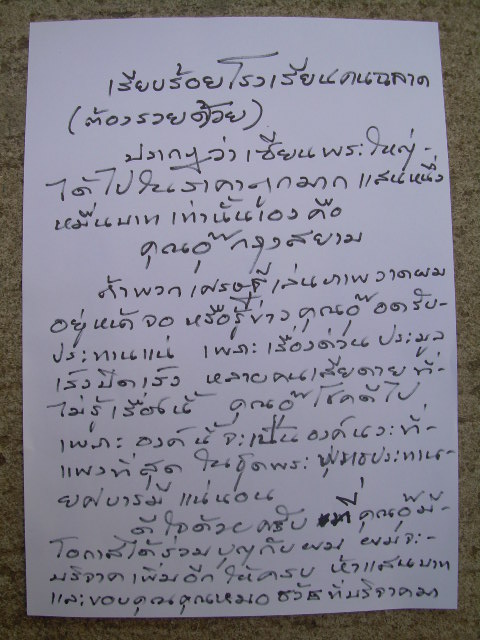 เรียบร้อยโรงเรียนคนฉลาด
(ต้องรวยด้วย)
ปรากฏว่า เซียนพระใหญ่-
ได้ไปในราคาถูกมาก แสนหนึ่ง
หมื่นบาท เท่านั้นเอง คือ
คุณอู๊ กรุงสยาม
ถ้าพวกเศรษฐีเล่นภาพวาดผม
อยู่หน้าจอ หรือรู้ข่าว คุณอู๊ อดรับ-
ประทานแน่ เพราะ เรื่องด่วน ประมูล
เร็วปิดเร็ว หลายคนเสียดาย ที่-
ไม่รู้เรื่องนี้ คุณอู๊ โชคดีไป
เพราะ องค์นี้จะเป็นองค์นวะที่-
แพงที่สุด ในชุดพระ พุทธประทาน-
ยศบารมี แน่นอน
ดีใจด้วยครับ ที่ คุณอู๊มี-
โอกาสได้ร่วมบุญกับผม ผมจะ-
บริจาคเพิ่มอีก ให้ครบ ห้าแสนบาท
และขอบคุณคุณหมอ ธวัช ที่บริจาคมา